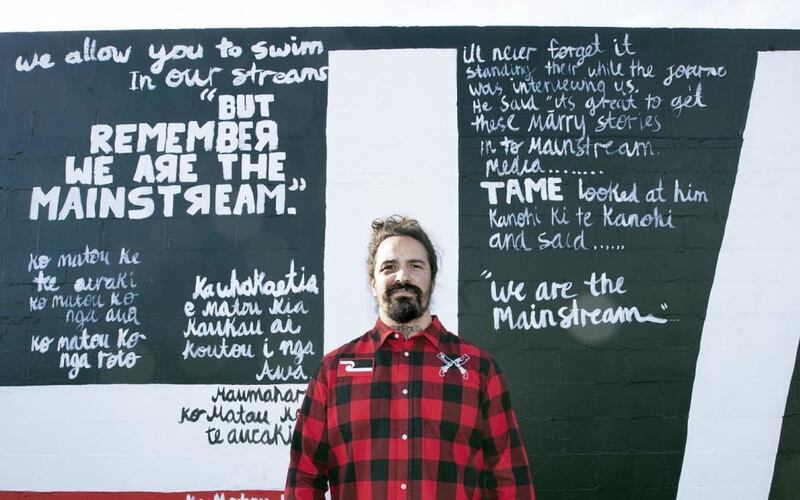 we allow you to swim
In our streams
"BUT
REMEMBER
WE ARE THE
MAINSTREAM."
ko matou ke
te auraki
ko matou ko
nga awa
ko matou ko
nga roto
Ka whakaetia
e matou kia
kaukau ai
koutou i nga
Awa.
Maumahar
ko Matou ke
te auraki
ko Matou
ill never forget it
standing their while the
was interviewing us.
He said "its great to get
these Mārry stories
in to Mainstream.
Media........
TAME looked at him
Kanohi ki te Kanohi
and said......
"we are the
Mainstream"